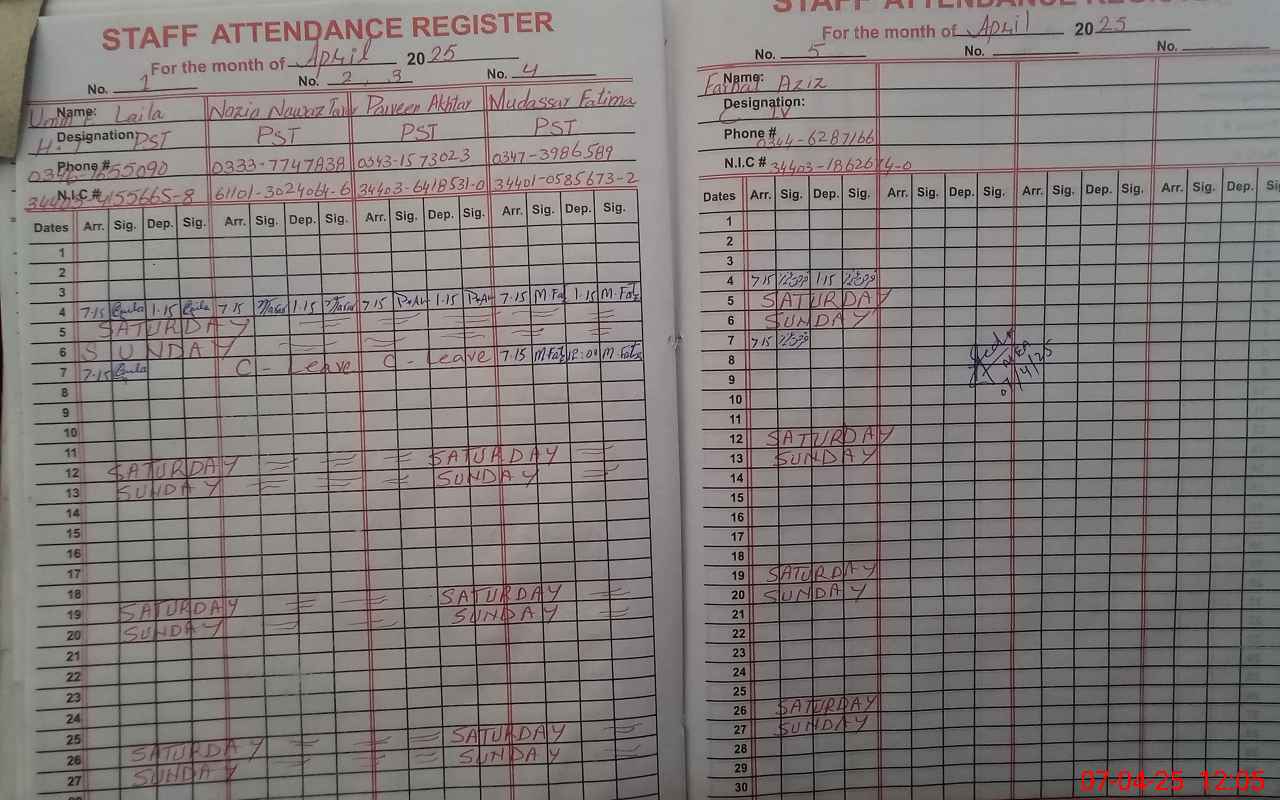 STAFF ATTENDANCE REGISTER
For the month of April 2025
No. 1 No. 2, 3 No. 4
Name: Umm E Laila Nazia Nawraz Parveen Akhtar Mudassar Fatima
Designation: PST PST PST PST
Phone # 0333-7747838 0343-1573023 0347-3986589
N.I.C # 61101-3024064-6 34403-6418531-0 34401-0585673-2
Dates Arr. Sig. Dep. Sig. Arr. Sig. Dep. Sig. Arr. Sig. Dep. Sig. Arr. Sig. Dep. Sig.
1
2
3
4 7-15 Laila 1-15 Laila 7-15 1-15 7-15 1-15 7-15 M.Fat 1-15 M.Fat
5 SATURDAY
6 SUNDAY
7 7-15 Laila C - Leave C - Leave 7-15 M.Fat 12:00 M.Fat
8
9
10
11
12 SATURDAY SATURDAY
13 SUNDAY SUNDAY
14
15
16
17
18
19 SATURDAY SATURDAY
20 SUNDAY SUNDAY
21
22
23
24
25
26 SATURDAY SATURDAY
27 SUNDAY SUNDAY
STAFF ATTENDANCE REGISTER
For the month of April 2025
No. 5 No. No.
Name: Farhat Aziz
Designation: C IV
Phone # 0344-6287166
N.I.C # 34403-1862674-0
Dates Arr. Sig. Dep. Sig. Arr. Sig. Dep. Sig. Arr. Sig. Dep. Sig. Arr. Sig. Dep.
1
2
3
4 7-15 1-15
5 SATURDAY
6 SUNDAY
7 7-15
8
MEA
07/4/25
9
10
11
12 SATURDAY
13 SUNDAY
14
15
16
17
18
19 SATURDAY
20 SUNDAY
21
22
23
24
25
26 SATURDAY
27 SUNDAY
28
29
30
07-04-25 12:05